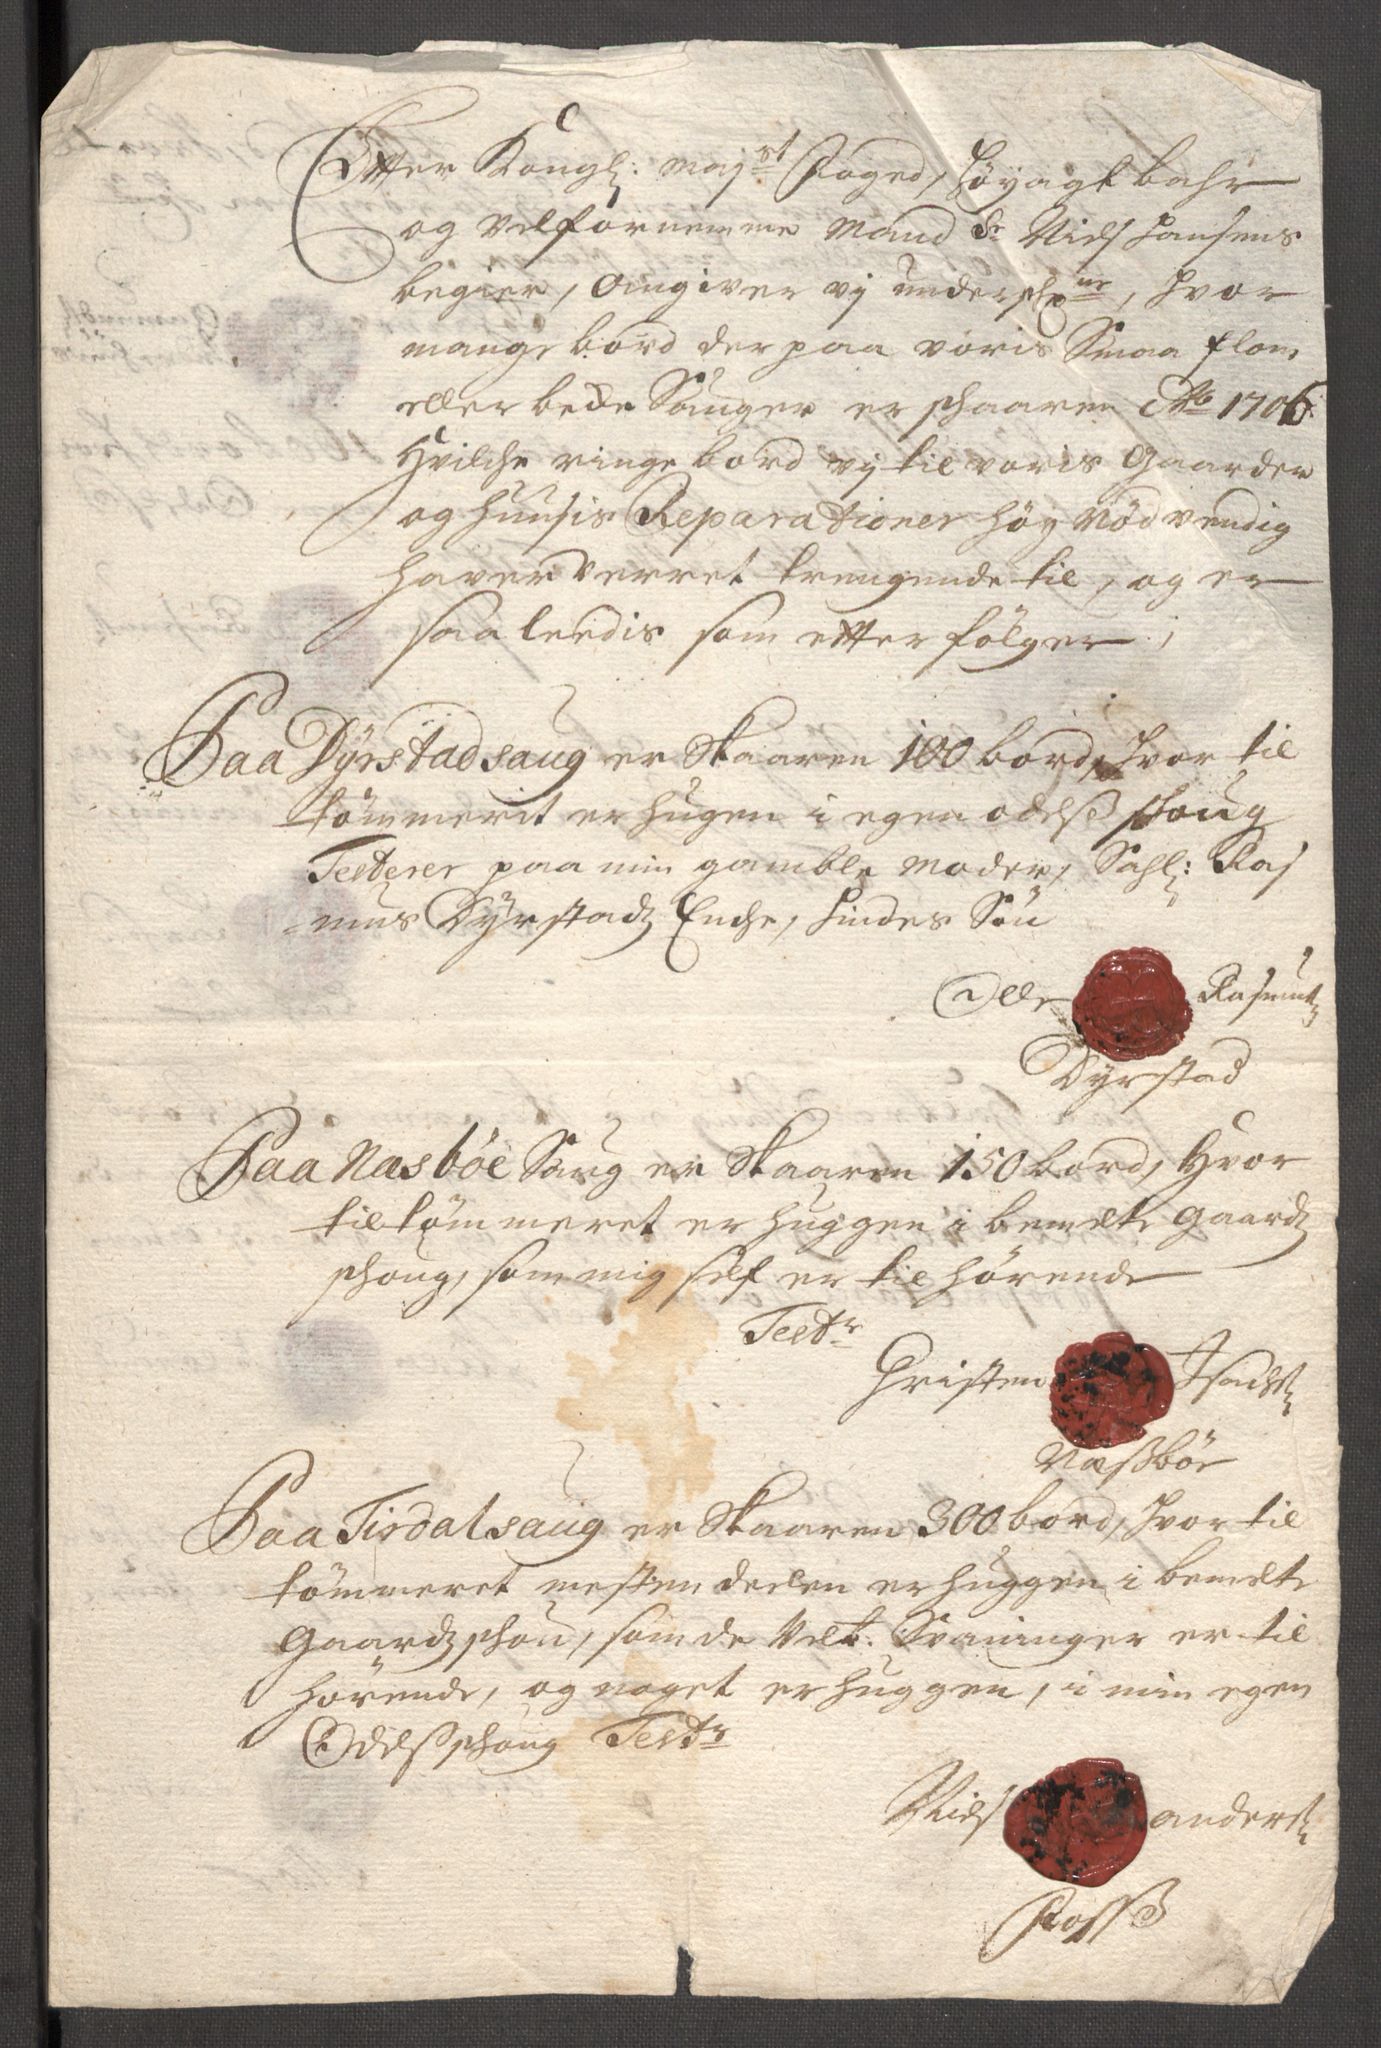 Etter Kongl: Maj:st Foged, Høyagtbahr
og velfornemme Mand Sr Niels Hansens
begier, Angiver vj underschr:ne, hvor
mange bord der paa voris Smaa flom
eller becke Sauger er schaaren Ao 1706
Hvilche ringe bord vj til voris Gaarder
og huusis Reparationer høy nødvendig
haver verret trengende til, og er
saaleedis som etter følger,
Paa Dÿrstad saug er Skaaren 100 bord, hvor til
tømmerit er hugen i egen odelß schoug
Testerer paa min gamble Moder, Sahl: Ras
=mus Dÿrstadz Enche, hindes Søn
Olle Rasmusz
Dyrstad
Paa Næsbøe Saug er Skaaren 150 bord, Hvor
til tømmeret er huggen i bemelte gaardz
schoug, som mig self er til hørende
Testr
Christen Isachsz
Næßbøe
Paa Tisdal saug er Skaaren 300 bord, hvor til
tømmeret mesten deelen er huggen i bemelte
Gaardz schou, som de Velb. Svaninger er til
hørende, og noget er huggen, i min egen
Odelßschoug Testr
Niels anderß:
Roßß